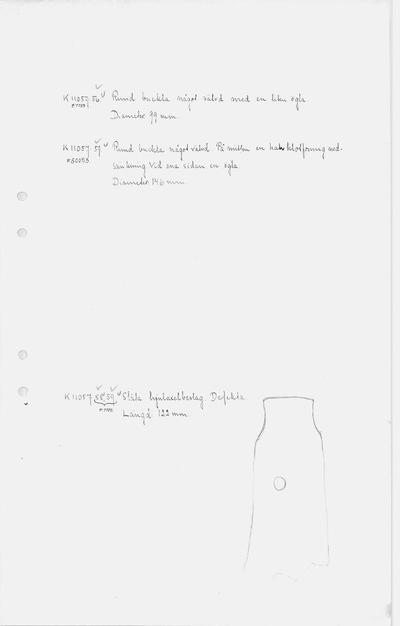 K 11057:56 Rund buckla något välvd med en liten ögla
Diameter 99 mm.
K 11057:57 Rund buckla något välvd. På mitten en halvklotformig ned-
sänkning vid ena sidan en ögla
Diameter 146 mm.
K 11057:58-59 Släta hjulaxelbeslag. Defekta
Längd 122 mm.